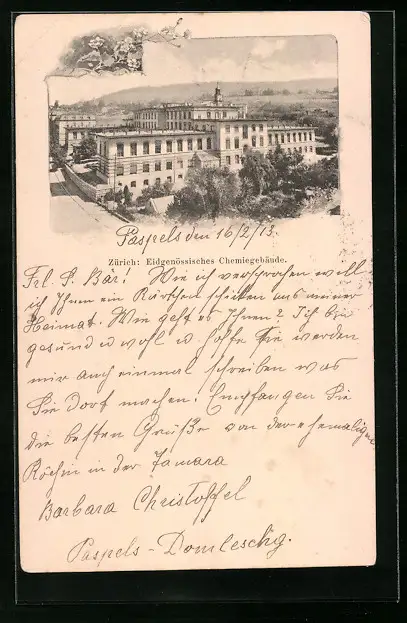 Paspels den 16/2/13.
Zürich: Eidgenössisches Chemiegebäude.
Frl. S. Bär! Wie ich versprochen woll
ich Ihnen ein Kärtchen schicken aus meiner
Heimat. Wie geht es Ihnen? Ich bin
gesund u wohl u hoffe Sie werden
mir auch einmal schreiben was
Sie dort machen. Empfangen Sie
die besten Grüße von der ehemaligen
Köchin in der Tamara
Barbara Christoffel
Paspels-Domleschg.